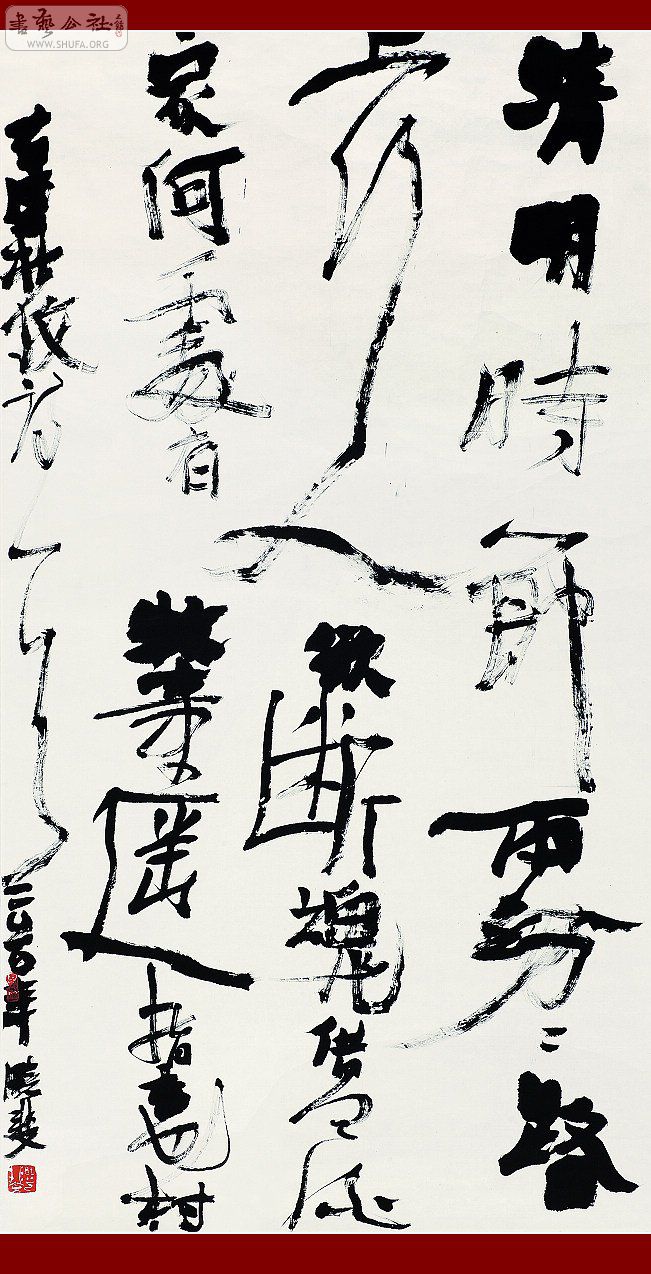 書藝公社
WWW.SHUFA.ORG
清明時節雨紛〻路
上行人欲斷魂借問酒
家何處有牧童遥指杏花村
杜牧詩一首 年